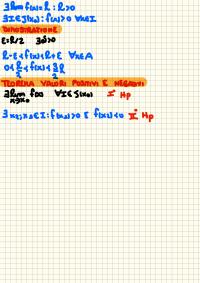 ∃ lim f(x) = l : l > 0
∃ I ∈ J(x₀) : f(x) > 0 ∀x ∈ I
DIMOSTRAZIONE
ε = l/2 ∃
l - ε < f(x) < l + ε ∀x ∈ A
0 < l/2 < f(x) < 3l/2
TEOREMA VALORI POSITIVI E NEGATIVI
∃ lim f(x) ∀I ∈ J(x₀) I Hp
x→x₀
∃ x₁, x₂ ∈ I : f(x₁) > 0 f(x₂) < 0 II Hp